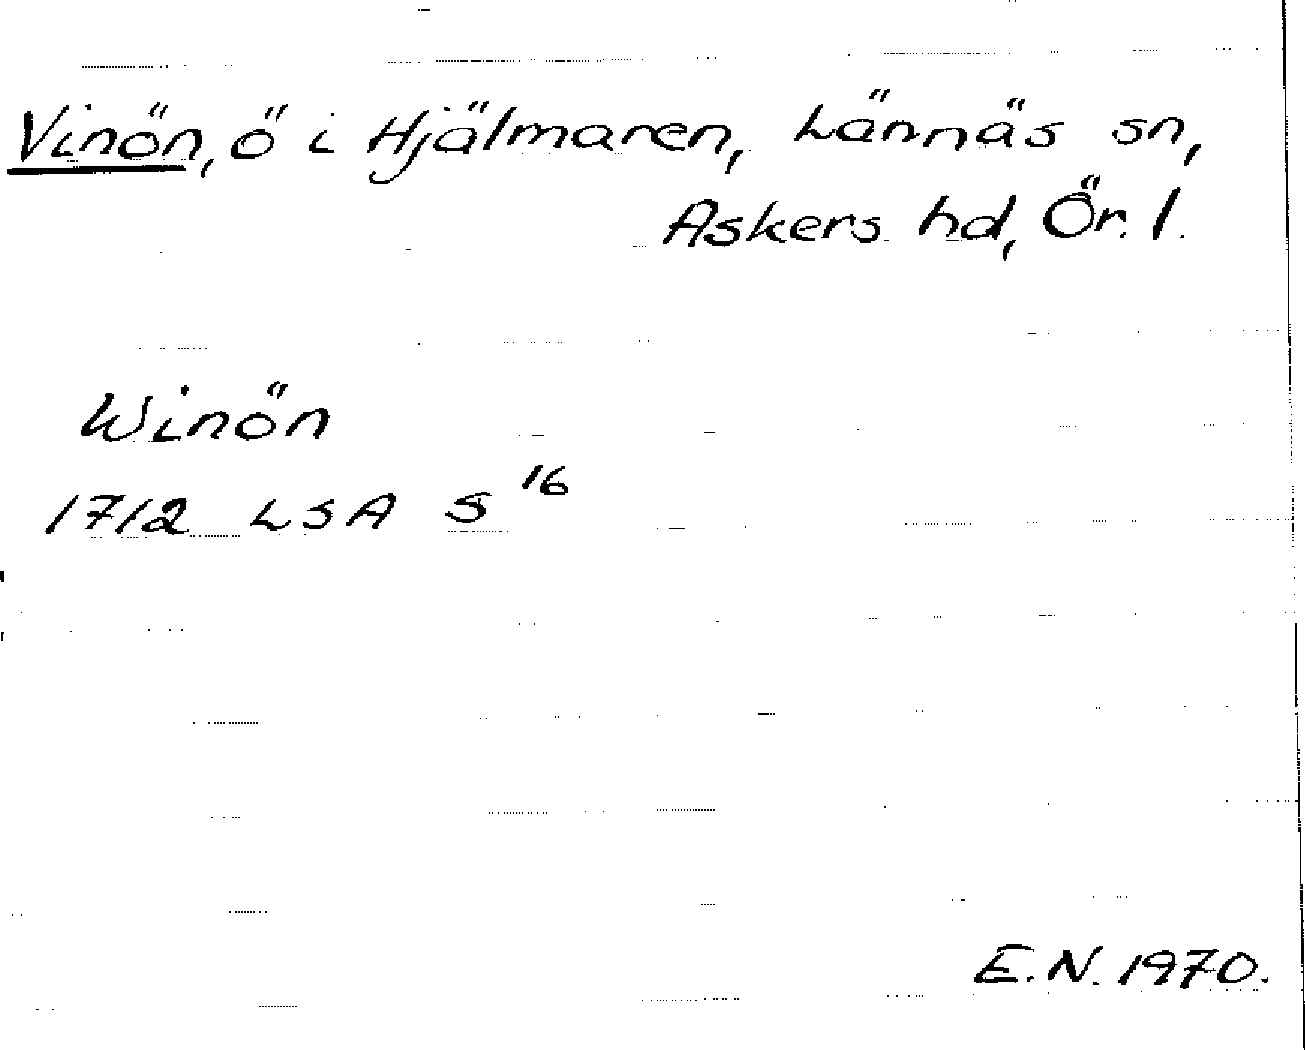 Vinön, ö i Hjälmaren, Lännäs sn,
Askers hd, Ör. l.
Winön
1712 LSA S 16
E.N. 1970.